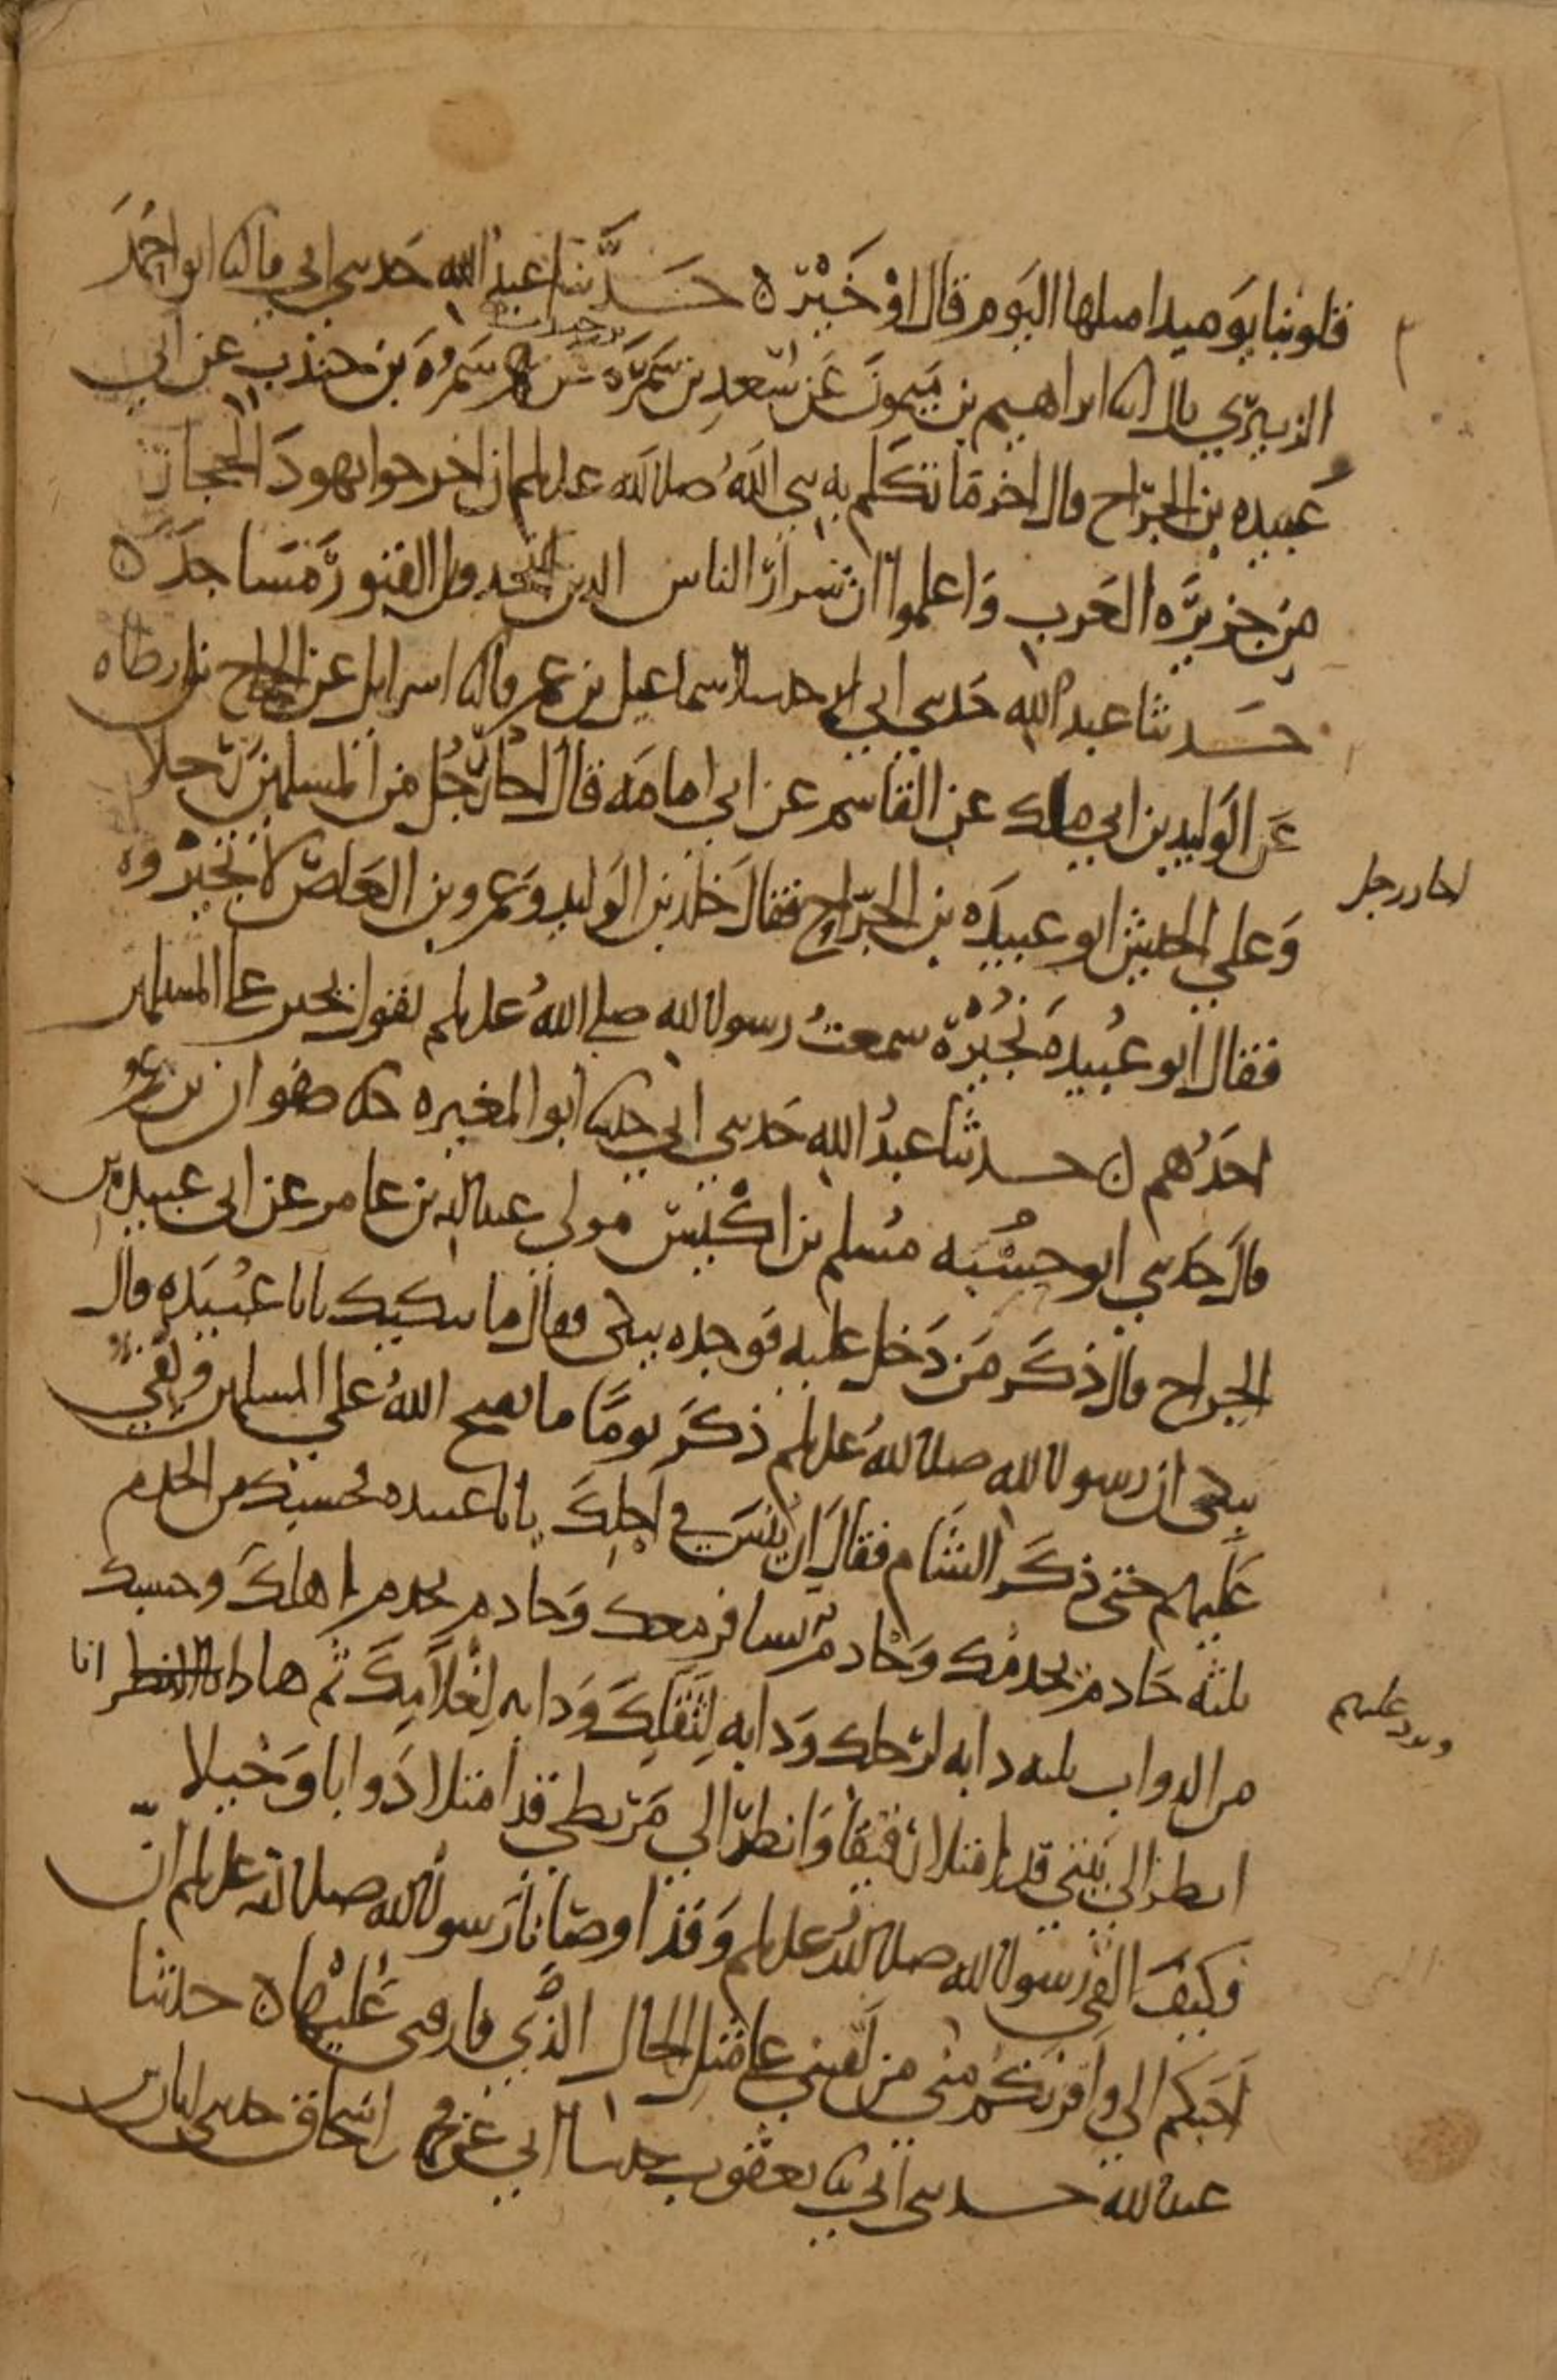 قلوبنا يوميد امثلها اليوم قال او خير ه حدثنا عبد الله حدثني ابي قال ثنا ابو احمد
الزبيري قال ثنا ابراهيم بن ميمون عن سعد بن سمرة سمرة بن جندب عن ابي
عبيده بن الجراح قال اخر ما تكلم به نبي الله صلى الله عليه وسلم ان اخرجوا يهود الحجاز
من جزيره العرب واعلموا ان شرار الناس الذين يتخذون القبور مساجد ه
حدثنا عبد الله حدثني ابي حدثنا اسماعيل بن عمر قال ثنا اسرايل عن الحجاج بن ارطاه
عن الوليد بن ابي ملك عن القاسم عن ابي امامه قال اجار رجل من المسلمين رجلا
وعلي الجيش ابو عبيده بن الجراح فقال خلد بن الوليد وعمرو بن العاص لا نجيره
فقال ابو عبيده نجيره سمعت رسول الله صلى الله عليه وسلم يقول يجير على المسلمين
احدهم ه حدثنا عبد الله حدثني ابي حدثنا ابو المغيره ثنا صفوان بن عمرو
قال حدثني ابو حسبه مسلم بن اكيس مولى عبد الله بن عامر عن ابي عبيده بن
الجراح قال ذكر من دخل عليه فوجده يبكي فقال ما يبكيك يابا عبيده قال
يبكي ان رسول الله صلى الله عليه وسلم ذكر يوما ما يفتح الله علي المسلمين ويفي
عليهم حتى ذكر الشام فقال ان ينس في اجلك يابا عبيده فحسبك من الخدم
ثلثه خادم يخدمك وخادم يسافر معك وخادم يخدم اهلك وحسبك
من الدواب ثلثه دابه لرحلك ودابه لثقلك ودابه لغلامك ثم هاذا انا
انظر الي بيتي قد امتلا رقيقا وانظر الي مربطي قد امتلا دوابا وخيلا
فكيف القى رسول الله صلى الله عليه وسلم وقد اوصانا رسول الله صلى الله عليه وسلم ان
احبكم الي واقربكم مني من لقيني على مثل الحال الذي فارقني عليها ه حدثنا
عبد الله حدثني ابي ثنا يعقوب حدثنا ابي عن محمد بن اسحاق حدثني ابان بن
اجار رجل
عليهم